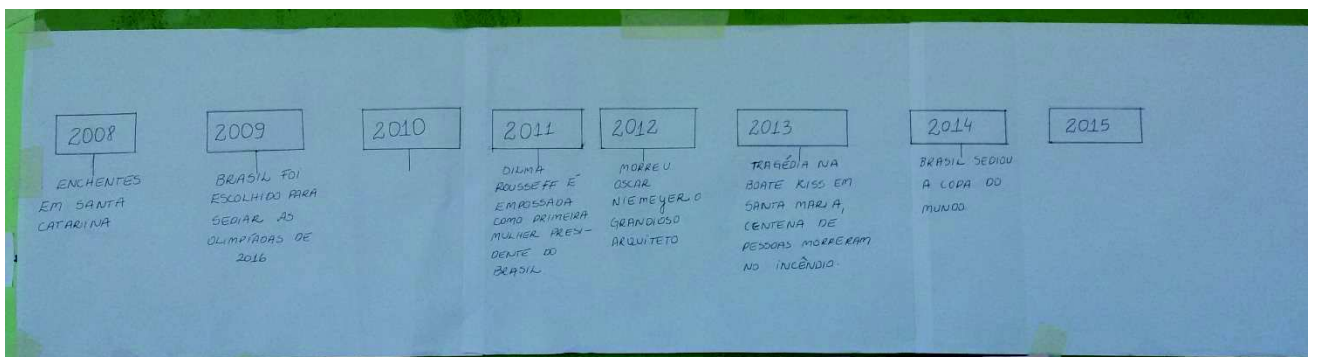 2008
ENCHENTES
EM SANTA
CATARIINA
2009
BRASIL FOI
ESCOLHIDO PARA
SEDIAR AS
OLIMPÍADAS DE
2016
2010
2011
DILMA
ROUSSEFF É
EMPOSSADA
COMO PRIMEIRA
MULHER PRESI-
DENTE DO
BRASIL
2012
MORREU
OSCAR
NIEMEYER O
GRANDIOSO
ARQUITETO
2013
TRAGÉDIA NA
BOATE KISS EM
SANTA MARIA,
CENTENA DE
PESSOAS MORRERAM
NO INCÊNDIO.
2014
BRASIL SEDIOU
A COPA DO
MUNDO.
2015